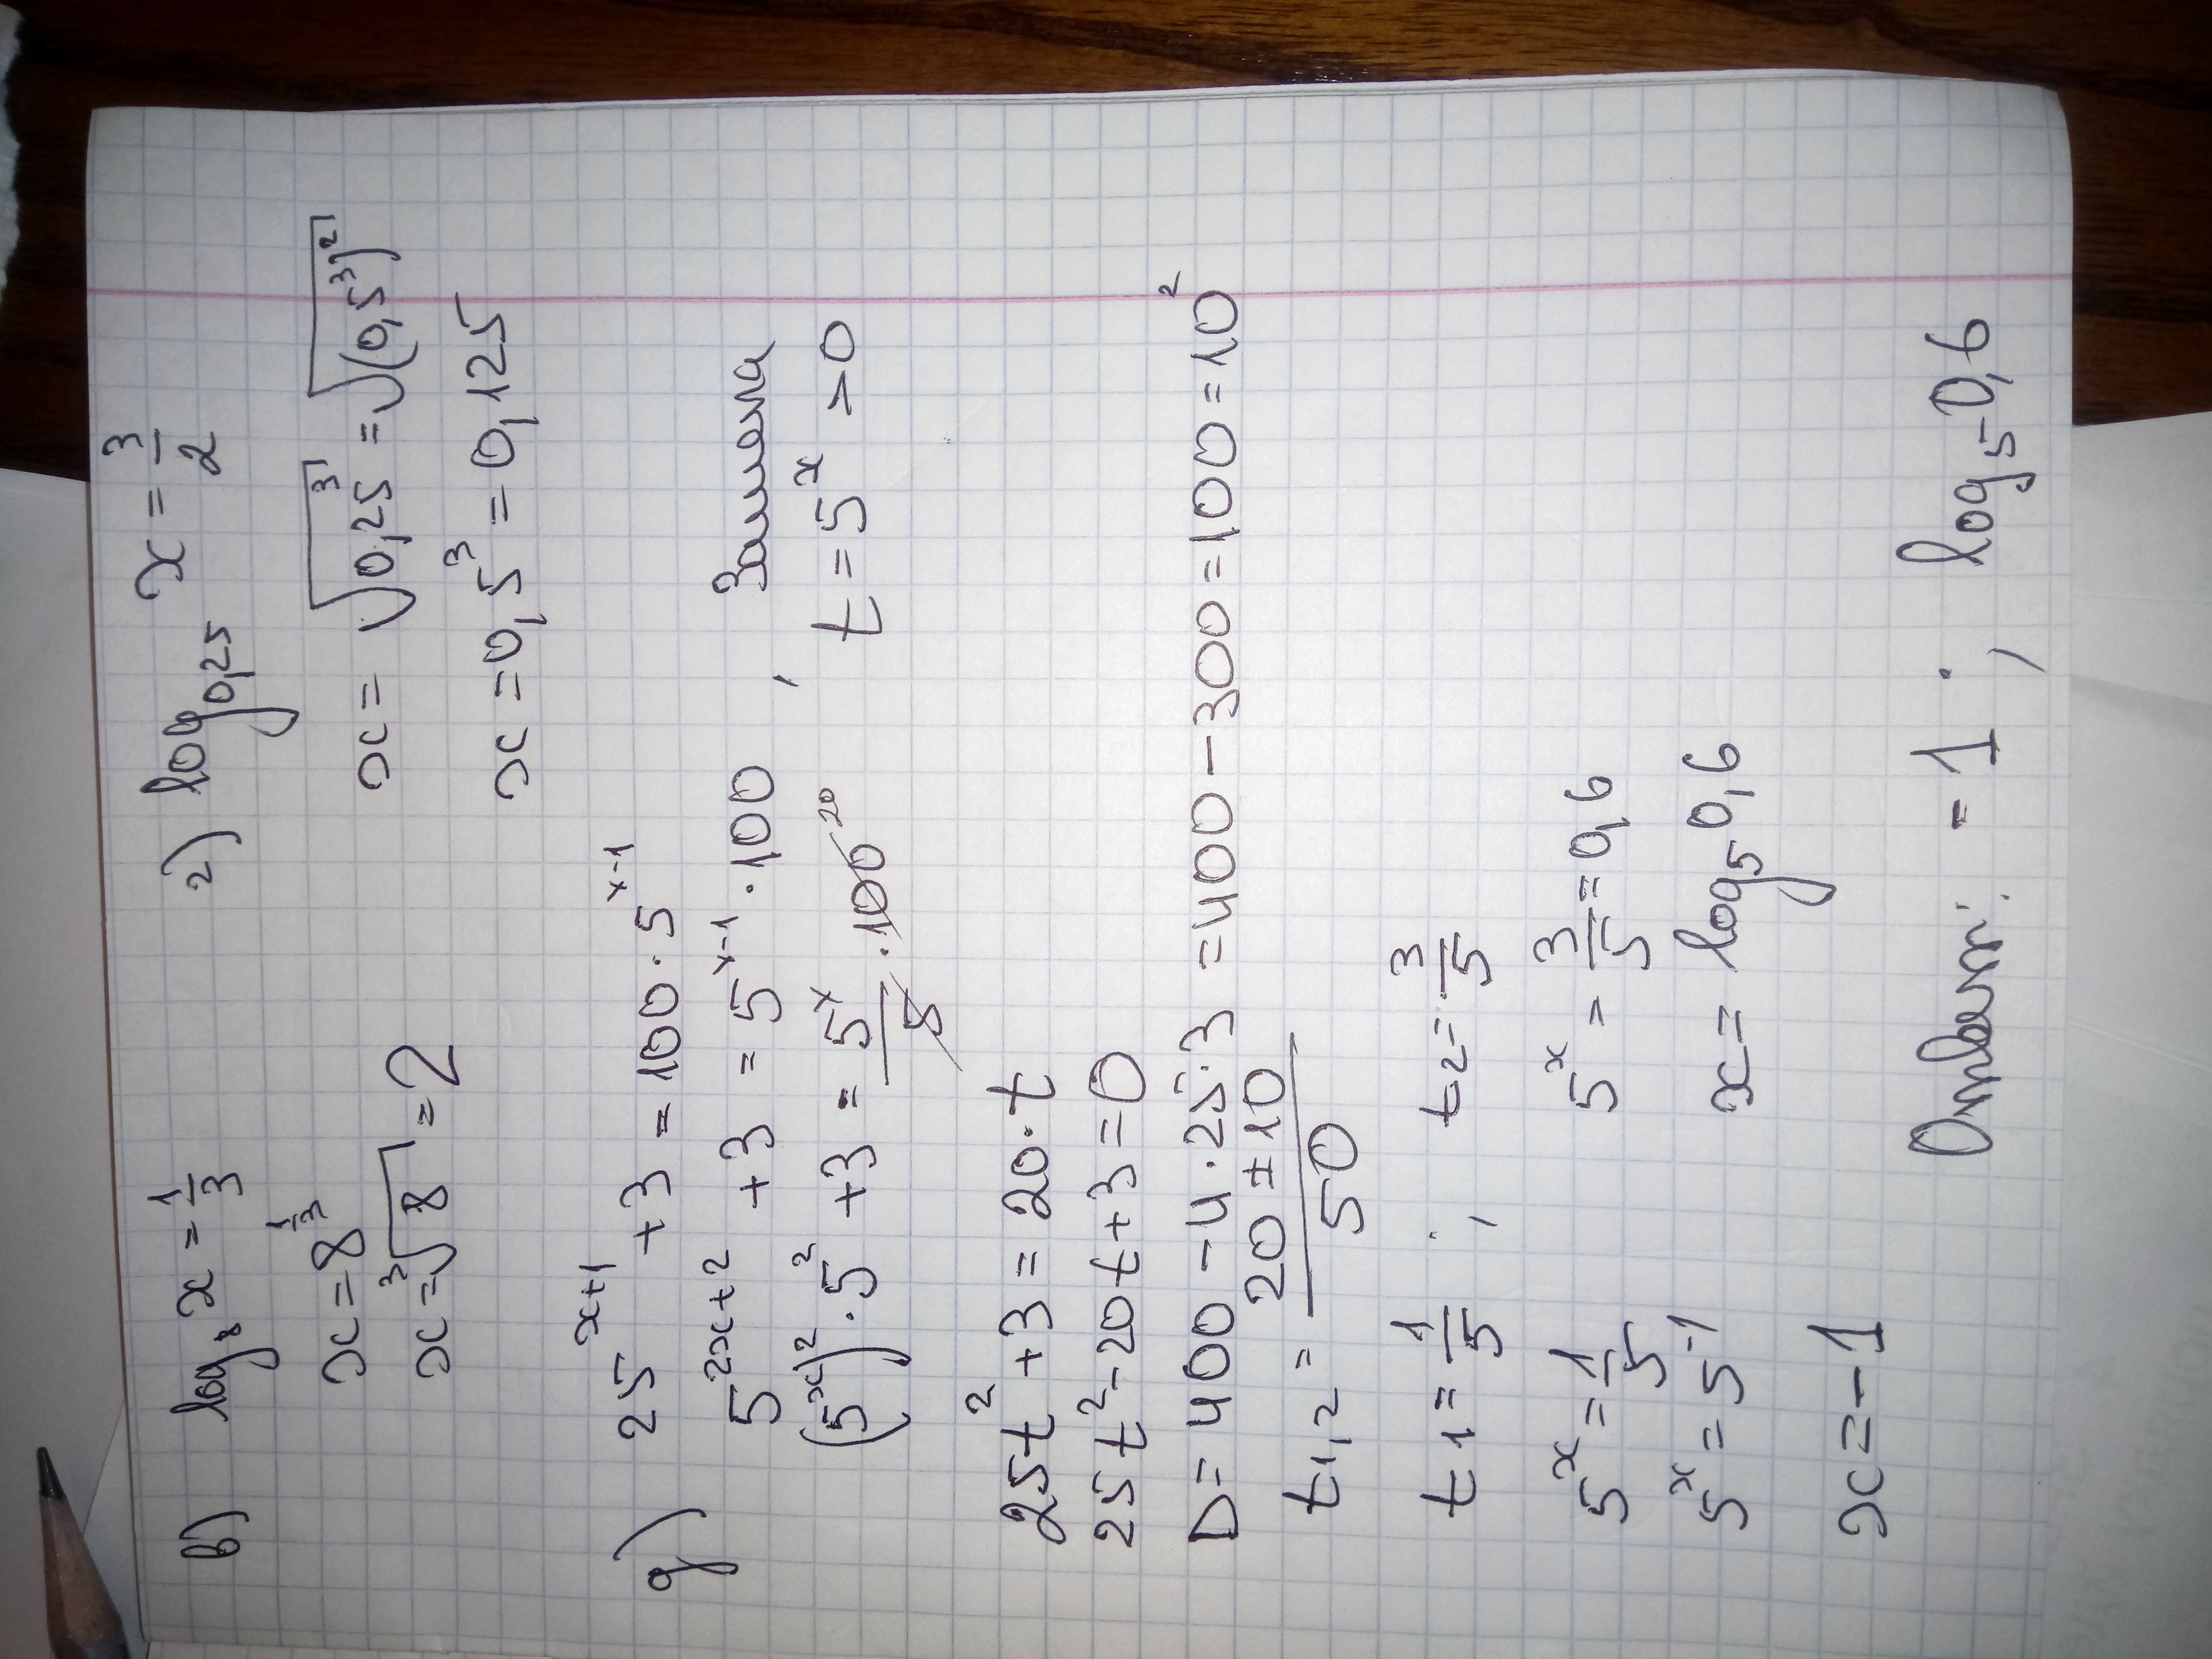 в) log₈ x = 1/3
x = 8^(1/3)
x = ³√8 = 2
г) log₀,₂₅ x = 3/2
x = √(0,25³) = √((0,5³)²)
x = 0,5³ = 0,125
д) 25^(x+1) + 3 = 100 · 5^(x-1)
5^(2x+2) + 3 = 5^(x-1) · 100 , Замена
(5^x)² · 5² + 3 = 5^x/5 · 100 20 t = 5^x > 0
25t² + 3 = 20 · t
25t² - 20t + 3 = 0
D = 400 - 4 · 25 · 3 = 400 - 300 = 100 = 10²
t₁,₂ = (20 ± 10)/50
t₁ = 1/5 ; t₂ = 3/5
5^x = 1/5 5^x = 3/5 = 0,6
5^x = 5^(-1) x = log₅ 0,6
x = -1
Ответ: -1 ; log₅ 0,6